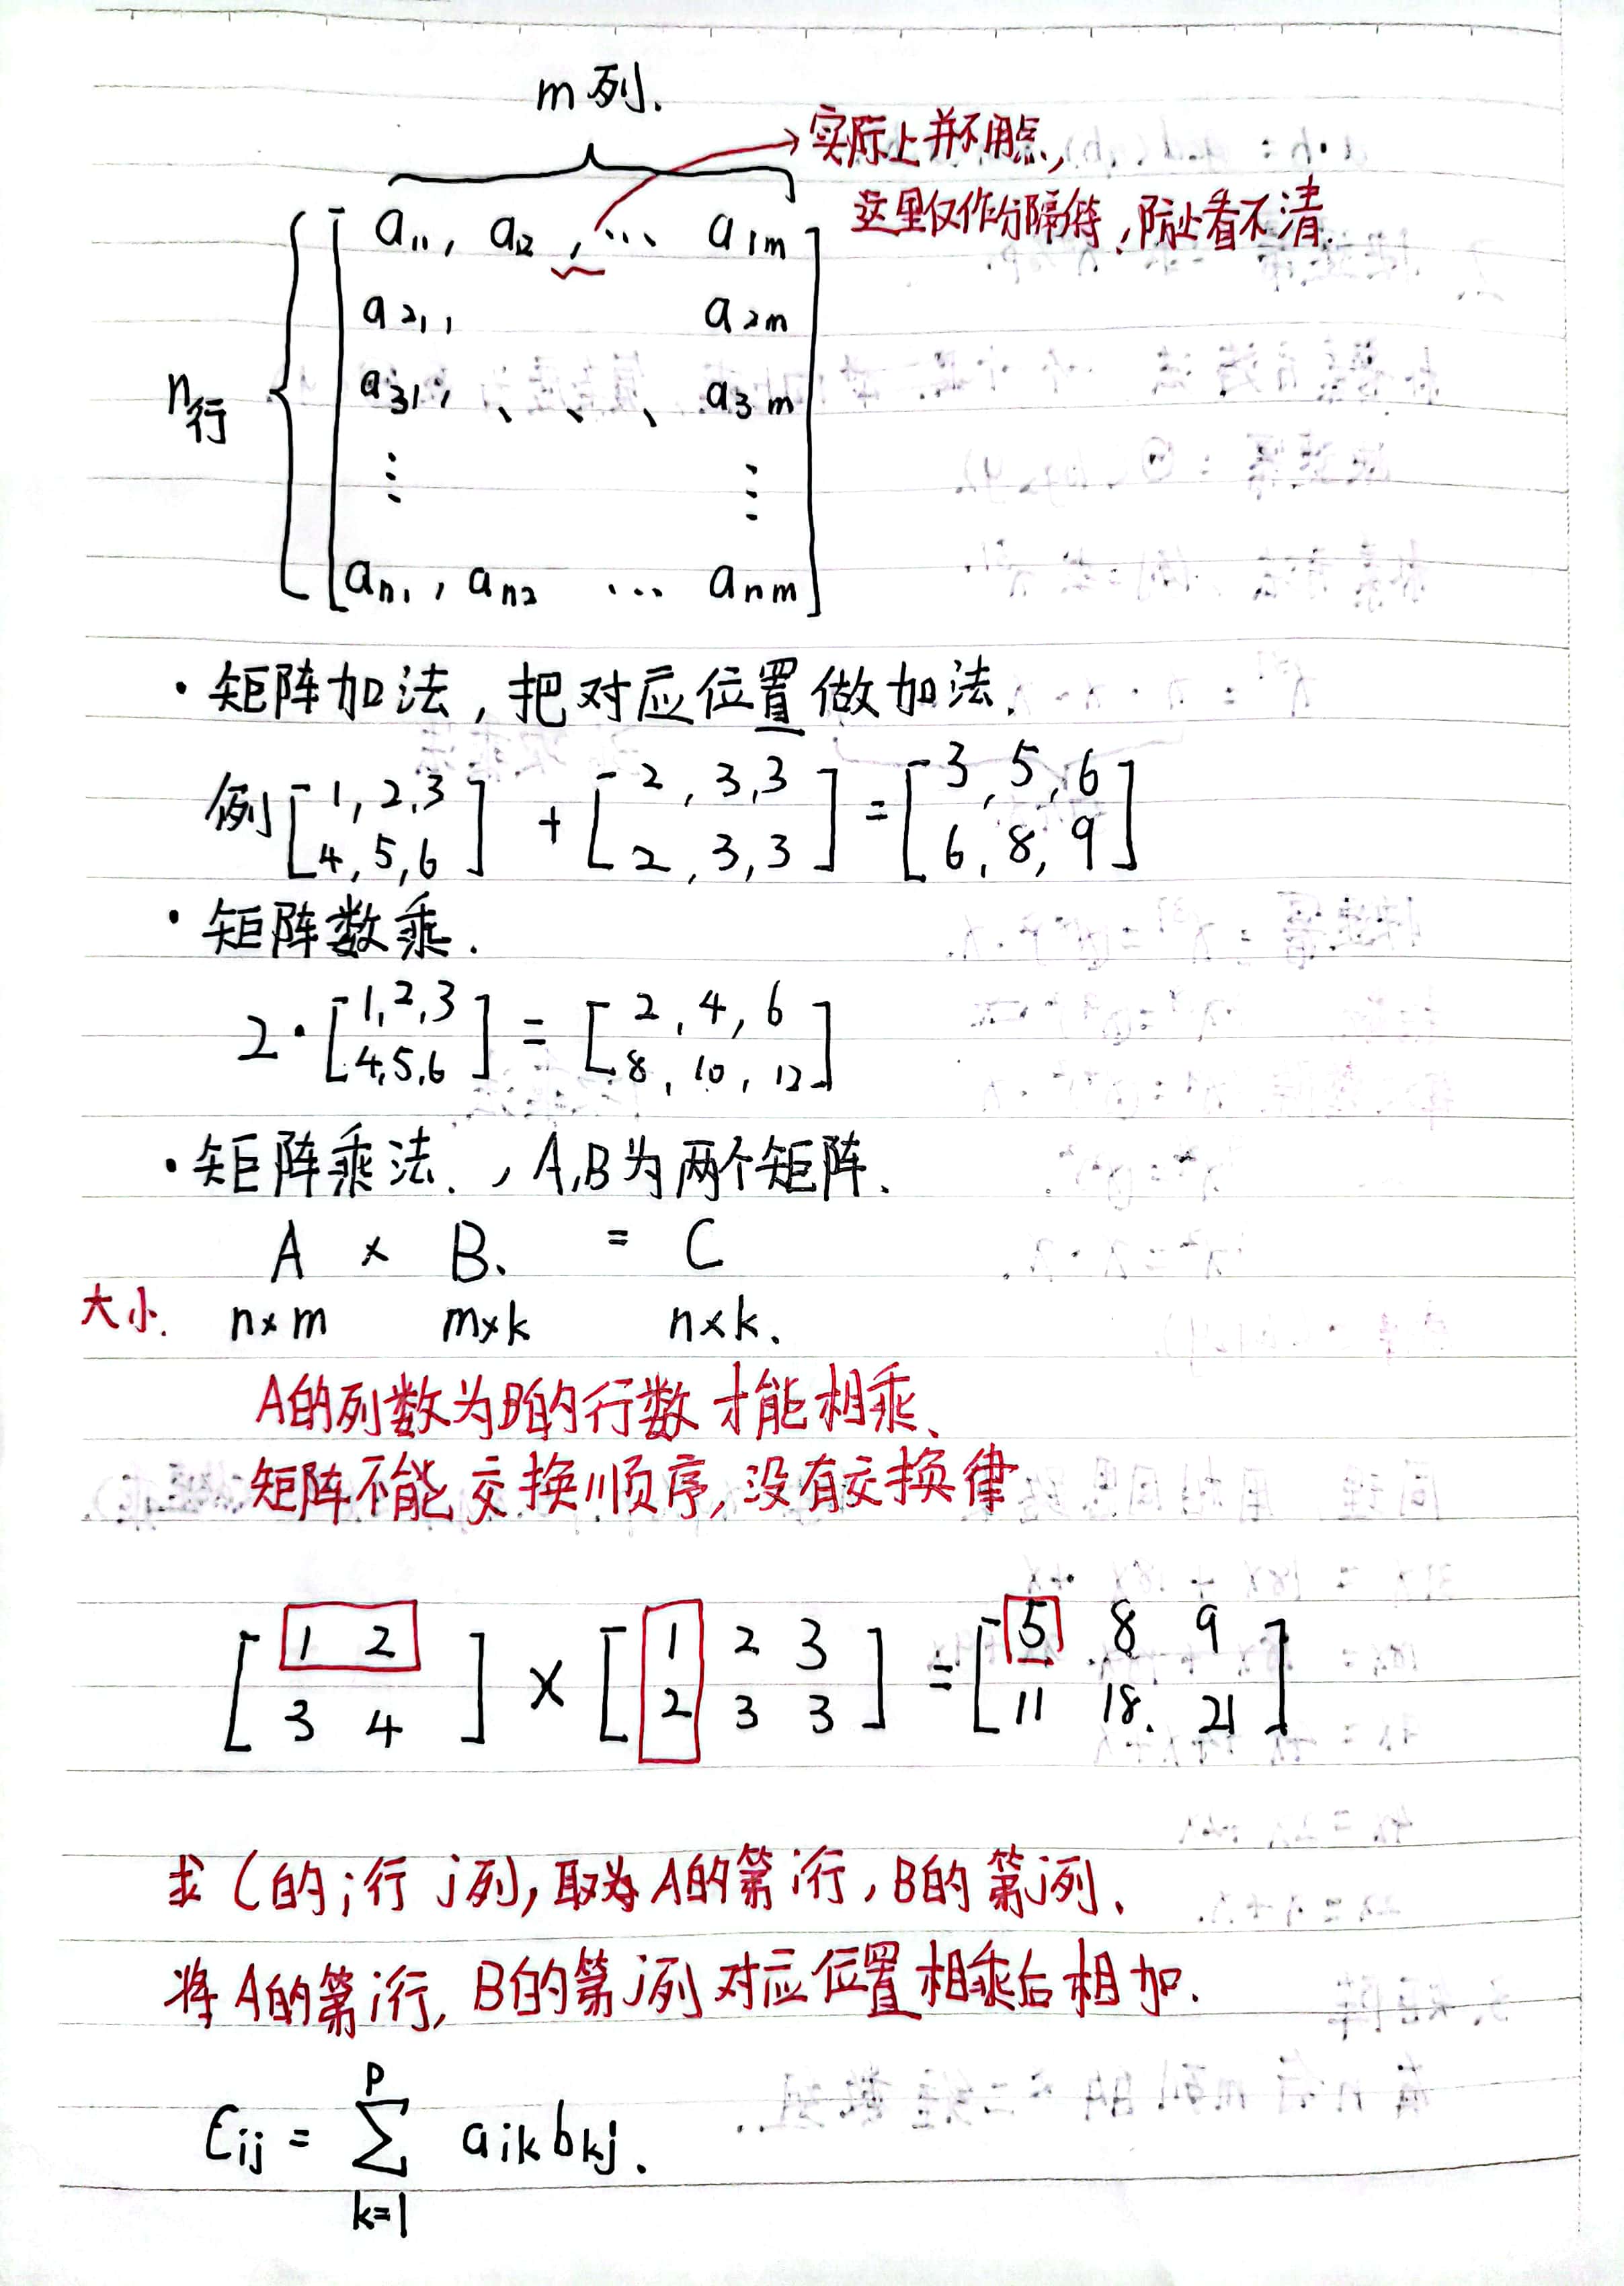 m列.
实际上并不用点,
这里仅作分隔符,防止看不清.
a₁₁, a₁₂, ... a₁ₘ
a₂₁, a₂ₘ
n行
a₃₁, 、、、 a₃ₘ
⋮ ⋮
aₙ₁, aₙ₂ ... aₙₘ
·矩阵加法,把对应位置做加法.
例[1,2,3 4,5,6] + [2,3,3 2,3,3] = [3,5,6 6,8,9]
·矩阵数乘.
2·[1,2,3 4,5,6] = [2,4,6 8,10,12]
·矩阵乘法.,A,B为两个矩阵.
A × B. = C
大小. n×m m×k n×k.
A的列数为B的行数才能相乘、
矩阵不能交换顺序,没有交换律
[1 2 3 4] × [1 2 3 2 3 3] = [5 8 9 11 18. 21]
求C的i行j列,取为A的第i行,B的第j列、
将A的第i行,B的第j列对应位置相乘后相加.
Cij = ∑ₖ₌₁ᵖ aik bkj.